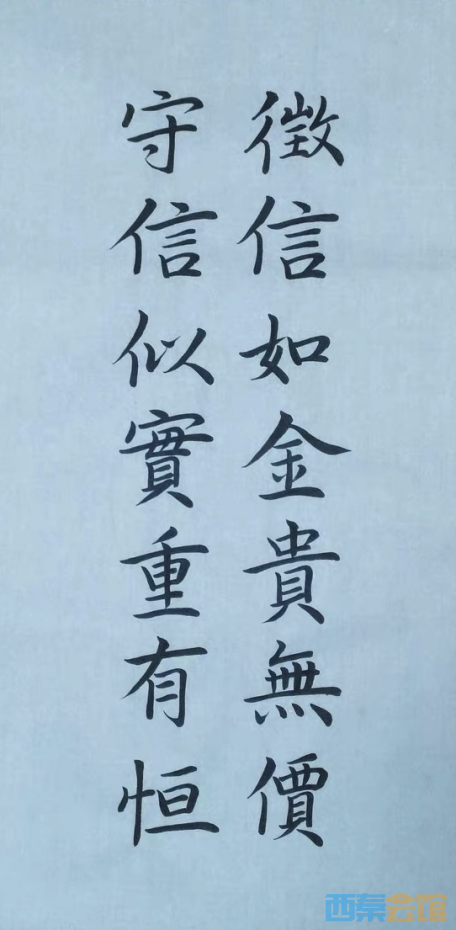 徵信如金貴無價
守信似實重有恒
西秦会馆